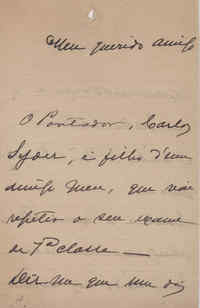 Meu querido amigo
O Portador, Carlos
é filho d'um
amigo meu, que vae
repetir o seu exame
de 7ª classe —
que um